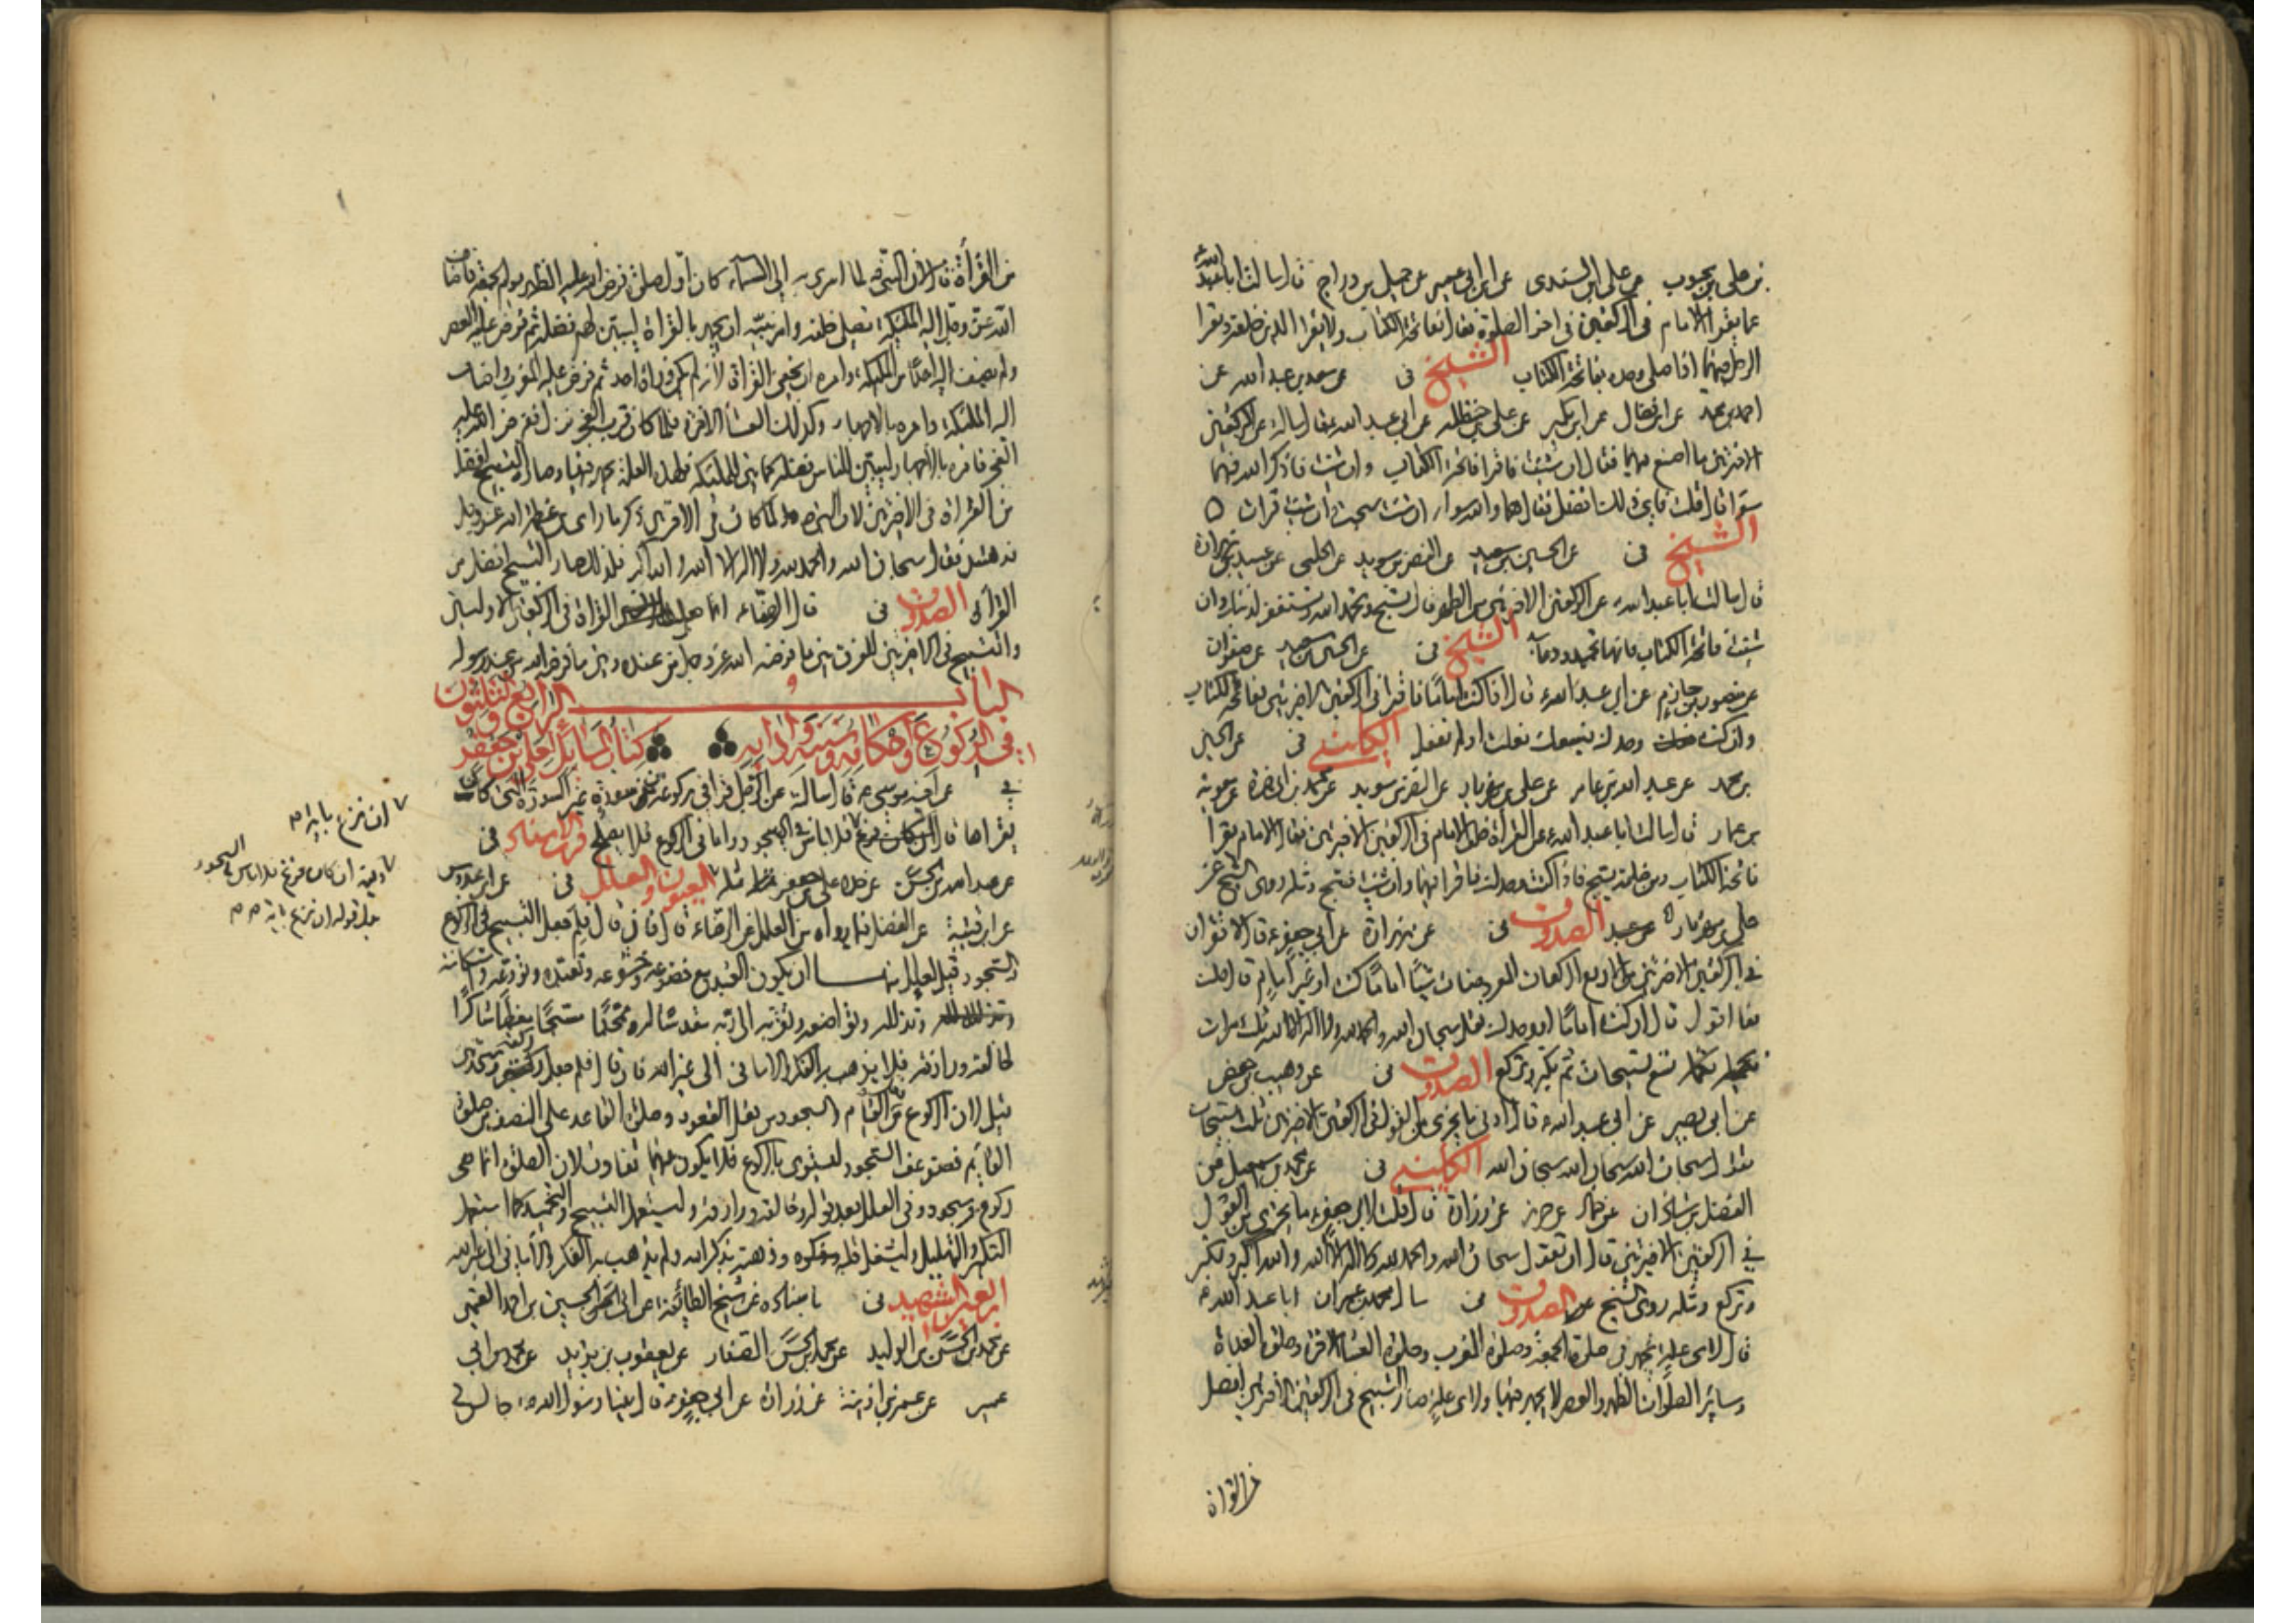 بن علي بن محبوب عن علي بن السندي عن ابن ابي عمير عن جميل بن دراج قال سالت ابا عبد الله ع
عما يقرأ الامام في الركعتين في اخر الصلوة فقال بفاتحة الكتاب ولا يقرأ الذين خلفه ويقرأ
الرجل فيهما اذا صلى وحده بفاتحة الكتاب الشيخ في عن سعد بن عبد الله عن
احمد بن محمد عن ابن فضال عن ابن بكير عن علي بن حنظله عن ابي عبد الله ع قال سالته عن الركعتين
الاخيرتين ما اصنع فيهما فقال ان شئت فاقرا فاتحة الكتاب وان شئت فاذكر الله فهما
سواء قال قلت فاي ذلك افضل فقال هما والله سواء ان شئت سبحت وان شئت قرات
الشيخ في عن الحسين بن سعيد عن النضر بن سويد عن الحلبي عن عبيد بن زرارة
قال سالت ابا عبد الله ع عن الركعتين الاخيرتين من الظهر قال تسبح وتحمد الله وتستغفر لذنبك وان
شئت فاتحة الكتاب فانها تحميد ودعاء الشيخ في عن الحسين بن سعيد عن صفوان
عن منصور بن حازم عن ابي عبد الله ع قال اذا كنت اماما فاقرا في الركعتين الاخيرتين بفاتحة الكتاب
وان كنت وحدك فيسعك فعلت او لم تفعل الكليني في عن الحسين
بن محمد عن عبد الله بن عامر عن علي بن مهزيار عن النضر بن سويد عن محمد بن ابي حمزة عن معوية
بن عمار قال سالت ابا عبد الله ع عن القراة خلف الامام في الركعتين الاخيرتين فقال الامام يقرأ
فاتحة الكتاب ومن خلفه يسبح فاذا كنت وحدك فاقرا فيهما وان شئت فسبح ومثله روى الشيخ عن
علي بن مهزيار الصدوق في عن زرارة عن ابي جعفر ع قال لا تقران
في الركعتين الاخيرتين من الاربع الركعات المفروضات شيئا اماما كنت او غير امام قال قلت
فما اقول قال ان كنت اماما او وحدك فقل سبحان الله والحمد لله ولا اله الا الله ثلث مرات
تكمله تسع تسبيحات ثم تكبر وتركع الصدوق في عن وهيب بن حفص
عن ابي بصير عن ابي عبد الله ع قال ادنى ما يجزي من القول في الركعتين الاخيرتين ثلث تسبيحات
تقول سبحان الله سبحان الله سبحان الله الكليني في عن محمد بن اسمعيل عن
الفضل بن شاذان عن حماد عن حريز عن زرارة قال قلت لابي جعفر ع ما يجزي من القول
في الركعتين الاخيرتين قال ان تقول سبحان الله والحمد لله ولا اله الا الله والله اكبر وتكبر
وتركع ومثله روى الشيخ الصدوق في سال محمد بن عمران ابا عبد الله ع
قال لاي علة يجهر في صلوة الجمعة وصلوة المغرب وصلوة العشاء الاخرة وصلوة الغداة
وسائر الصلوات الظهر والعصر لا يجهر فيها ولاي علة صار التسبيح في الركعتين الاخيرتين افضل
من القراة
من القراة قال لان النبي ص لما اسري به الى السماء كان اول صلوة فرض الله عليه الظهر يوم الجمعة فاضاف
الله عز وجل اليه الملئكة تصلي خلفه وامر نبيه ان يجهر بالقراة ليبين لهم فضله ثم فرض عليه العصر
ولم يضف اليه احدا من الملئكة وامره ان يخفي القراة لانه لم يكن وراه احد ثم فرض عليه المغرب واضاف
اليه الملئكة وامره بالاجهار وكذلك العشاء الاخرة فلما كان قرب الفجر نزل ففرض الله عليه
الفجر فامره بالاجهار ليبين للناس فضله كما بين للملئكة فلهذه العلة يجهر فيها وصار التسبيح افضل
من القراة في الاخيرتين لان النبي ص لما كان في الاخيرتين ذكر ما راى من عظمة الله عز وجل
فدهش فقال سبحان الله والحمد لله ولا اله الا الله والله اكبر فلذلك صار التسبيح افضل من
القراة الصدوق في قال الرضا ع انما جعل القراة في الركعتين الاوليين
والتسبيح في الاخيرتين للفرق بين ما فرضه الله عز وجل من عنده وبين ما فرضه الله من عند رسوله
الباب الرابع والثلثون
في الركوع واحكامه وسننه وادابه كتاب المسائل لعلي بن جعفر
في عن اخيه موسى ع قال سالته عن الرجل قرا في ركوعه من سورة غير السورة التي كان
يقراها قال ان كان فرغ فلا باس في السجود واما في الركوع فلا يصلح قرب الاسناد في
عن عبد الله بن الحسن عن جده علي بن جعفر مثله العيون والعلل في عن ابن عبدوس
عن ابن قتيبة عن الفضل فيما رواه من العلل عن الرضا ع قال فان قال فلم جعل التسبيح في الركوع
والسجود قيل لعلل منها ان يكون العبد مع خضوعه وخشوعه وتعبده وتورعه واستكانته
وتذلله وتواضعه وتقربه الى ربه مقدسا له ممجدا مسبحا معظما شاكرا
لخالقه ورازقه فلا يذهب به الفكر والاماني الى غير الله فان قال فلم جعل ركعة وسجدتين
قيل لان الركوع من فعل القيام والسجود من فعل القعود وصلوة القاعد على النصف من صلوة
القائم فضوعف السجود ليستوي بالركوع فلا يكون بينهما تفاوت لان الصلوة انما هي
ركوع وسجود وفي العلل بعد قوله لخالقه ورازقه وليستعمل التسبيح والتحميد كما استعمل
التكبير والتهليل وليشغل قلبه وذهنه بذكر الله ولم يذهب به الفكر والاماني الى غير الله
اربعين الشهيد في باسناده عن شيخ الطائفة عن ابي الحسين بن احمد القمي
عن محمد بن الحسن بن الوليد عن محمد بن الحسن الصفار عن يعقوب بن يزيد عن محمد بن ابي
عمير عن عمر بن اذينة عن زرارة عن ابي جعفر ع قال بينا رسول الله ص جالس في
ان نزع بايه م
وفيه ان كان فرغ فلا باس في السجود
بدل قوله ان نزع بايه م م